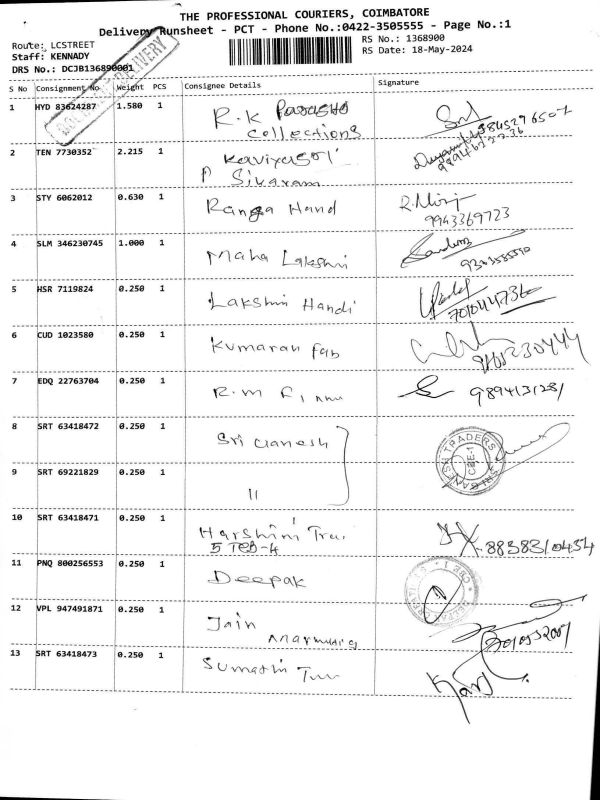 THE PROFESSIONAL COURIERS, COIMBATORE
Delivery Runsheet - PCT - Phone No.:0422-3505555 - Page No.:1
Route: LCSTREET
Staff: KENNADY
DRS No.: DCJB136890001
RS No.: 1368900
RS Date: 18-May-2024
S No Consignment No Weight PCS Consignee Details Signature
1 HYD 83624287 1.580 1 R.K
Collections
2 TEN 7730352 2.215 1
P Sivaram
3 STY 6062012 0.630 1 Ranga Hand
9943369723
4 SLM 346230745 1.000 1 Maha Lakshmi
5 HSR 7119824 0.250 1 Lakshmi Handi
701044736
6 CUD 1023580 0.250 1 Kumaran Fab
7 EDQ 22763704 0.250 1 R.M
9894131281
8 SRT 63418472 0.250 1 Sri Ganesh
GANESH TRADERS
CBE-1
9 SRT 69221829 0.250 1 11
10 SRT 63418471 0.250 1 Harshini
8838310434
11 PNQ 800256553 0.250 1 Deepak
12 VPL 947491871 0.250 1 Jain
13 SRT 63418473 0.250 1 Sumathi